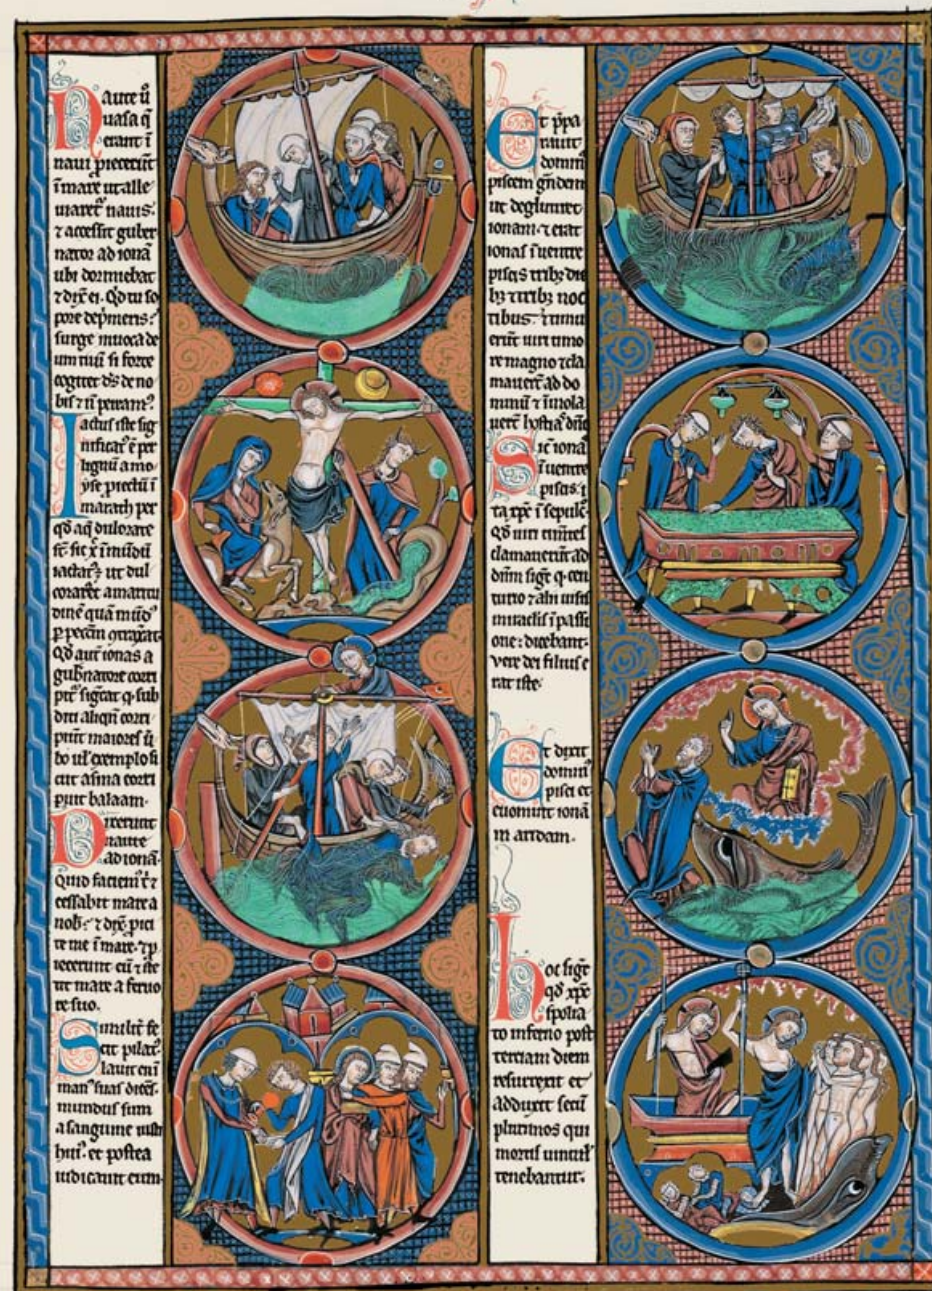 Naute ũ
uasa q̃
erant ĩ
naui ꝓiecerũt
ĩ mare ut alle
uiaret᷑ nauis:
⁊ accessit guber
nator ad ionã
ubi dormiebat
⁊ dix̃ ei. Qd tu so
pore dep̃meris?
surge inuoca de
um tuũ si forte
cogitet ds̃ de no
bis ⁊ ñ pereamꝰ.
Iactus iste sig
nificatꝰ ẽ per
lignũ a mo
yse ꝓiectũ ĩ
marath per
qd aq̃ dulorate
st̃ sic x̃ ĩ mũdũ
iactatꝰ ut dul
coraret᷑ amaritu
dinẽ quã mũdꝰ
ꝑ peccm̃
Qd aut̃ ionas a
gub̃natore corri
pit᷑ sig̃cat q. sub
diti aliqñ corri
piũt maiores ũ
bo ul̃ exemplo si
cut asina corri
puit balaam.
Dixerunt
naute
ad ionã.
Quid faciemꝰ t̃ ⁊
cessabit mare a
nob̃? ⁊ dix̃ ꝓici
te me ĩ mare. ⁊ ꝓ
iecerunt eũ ⁊ ste
tit mare a feruo
re suo.
Similit̃ fe
cit pilatꝰ
lauit enĩ
manꝰ suas dicẽs.
mundus sum
a sanguine iusti
huiꝰ. et postea
iudicauit eum.
Et p̃pa
rauit
dominꝰ
piscem g̃ndem
ut deglutiret
ionam. ⁊ erat
ionas ĩ uentre
piscis tribꝫ die
bꝫ ⁊ tribꝫ noc
tibus. ⁊ timu
erũt uiri timo
re magno ⁊ cla
mauerũt ad do
minũ ⁊ ĩmola
uerũt hostiã dño
Sic ionas
ĩ uentre
piscis. i
ta xp̃c ĩ sepulc̃.
Qd uiri timẽtes
clamauerũt ad
dñm sig̃t q. cen
turio ⁊ alii uisis
miraclis ĩ passi
one. dicebant.
vere dei filius e
rat iste.
Et dixit
dominꝰ
pisci et
euomuit ionã
in aridam.
hoc sig̃t
qd xp̃c
spolia
to inferno post
terciam diem
resurrexit et
adduxit secũ
plurimos qui
mortis uinctis
tenebantur.